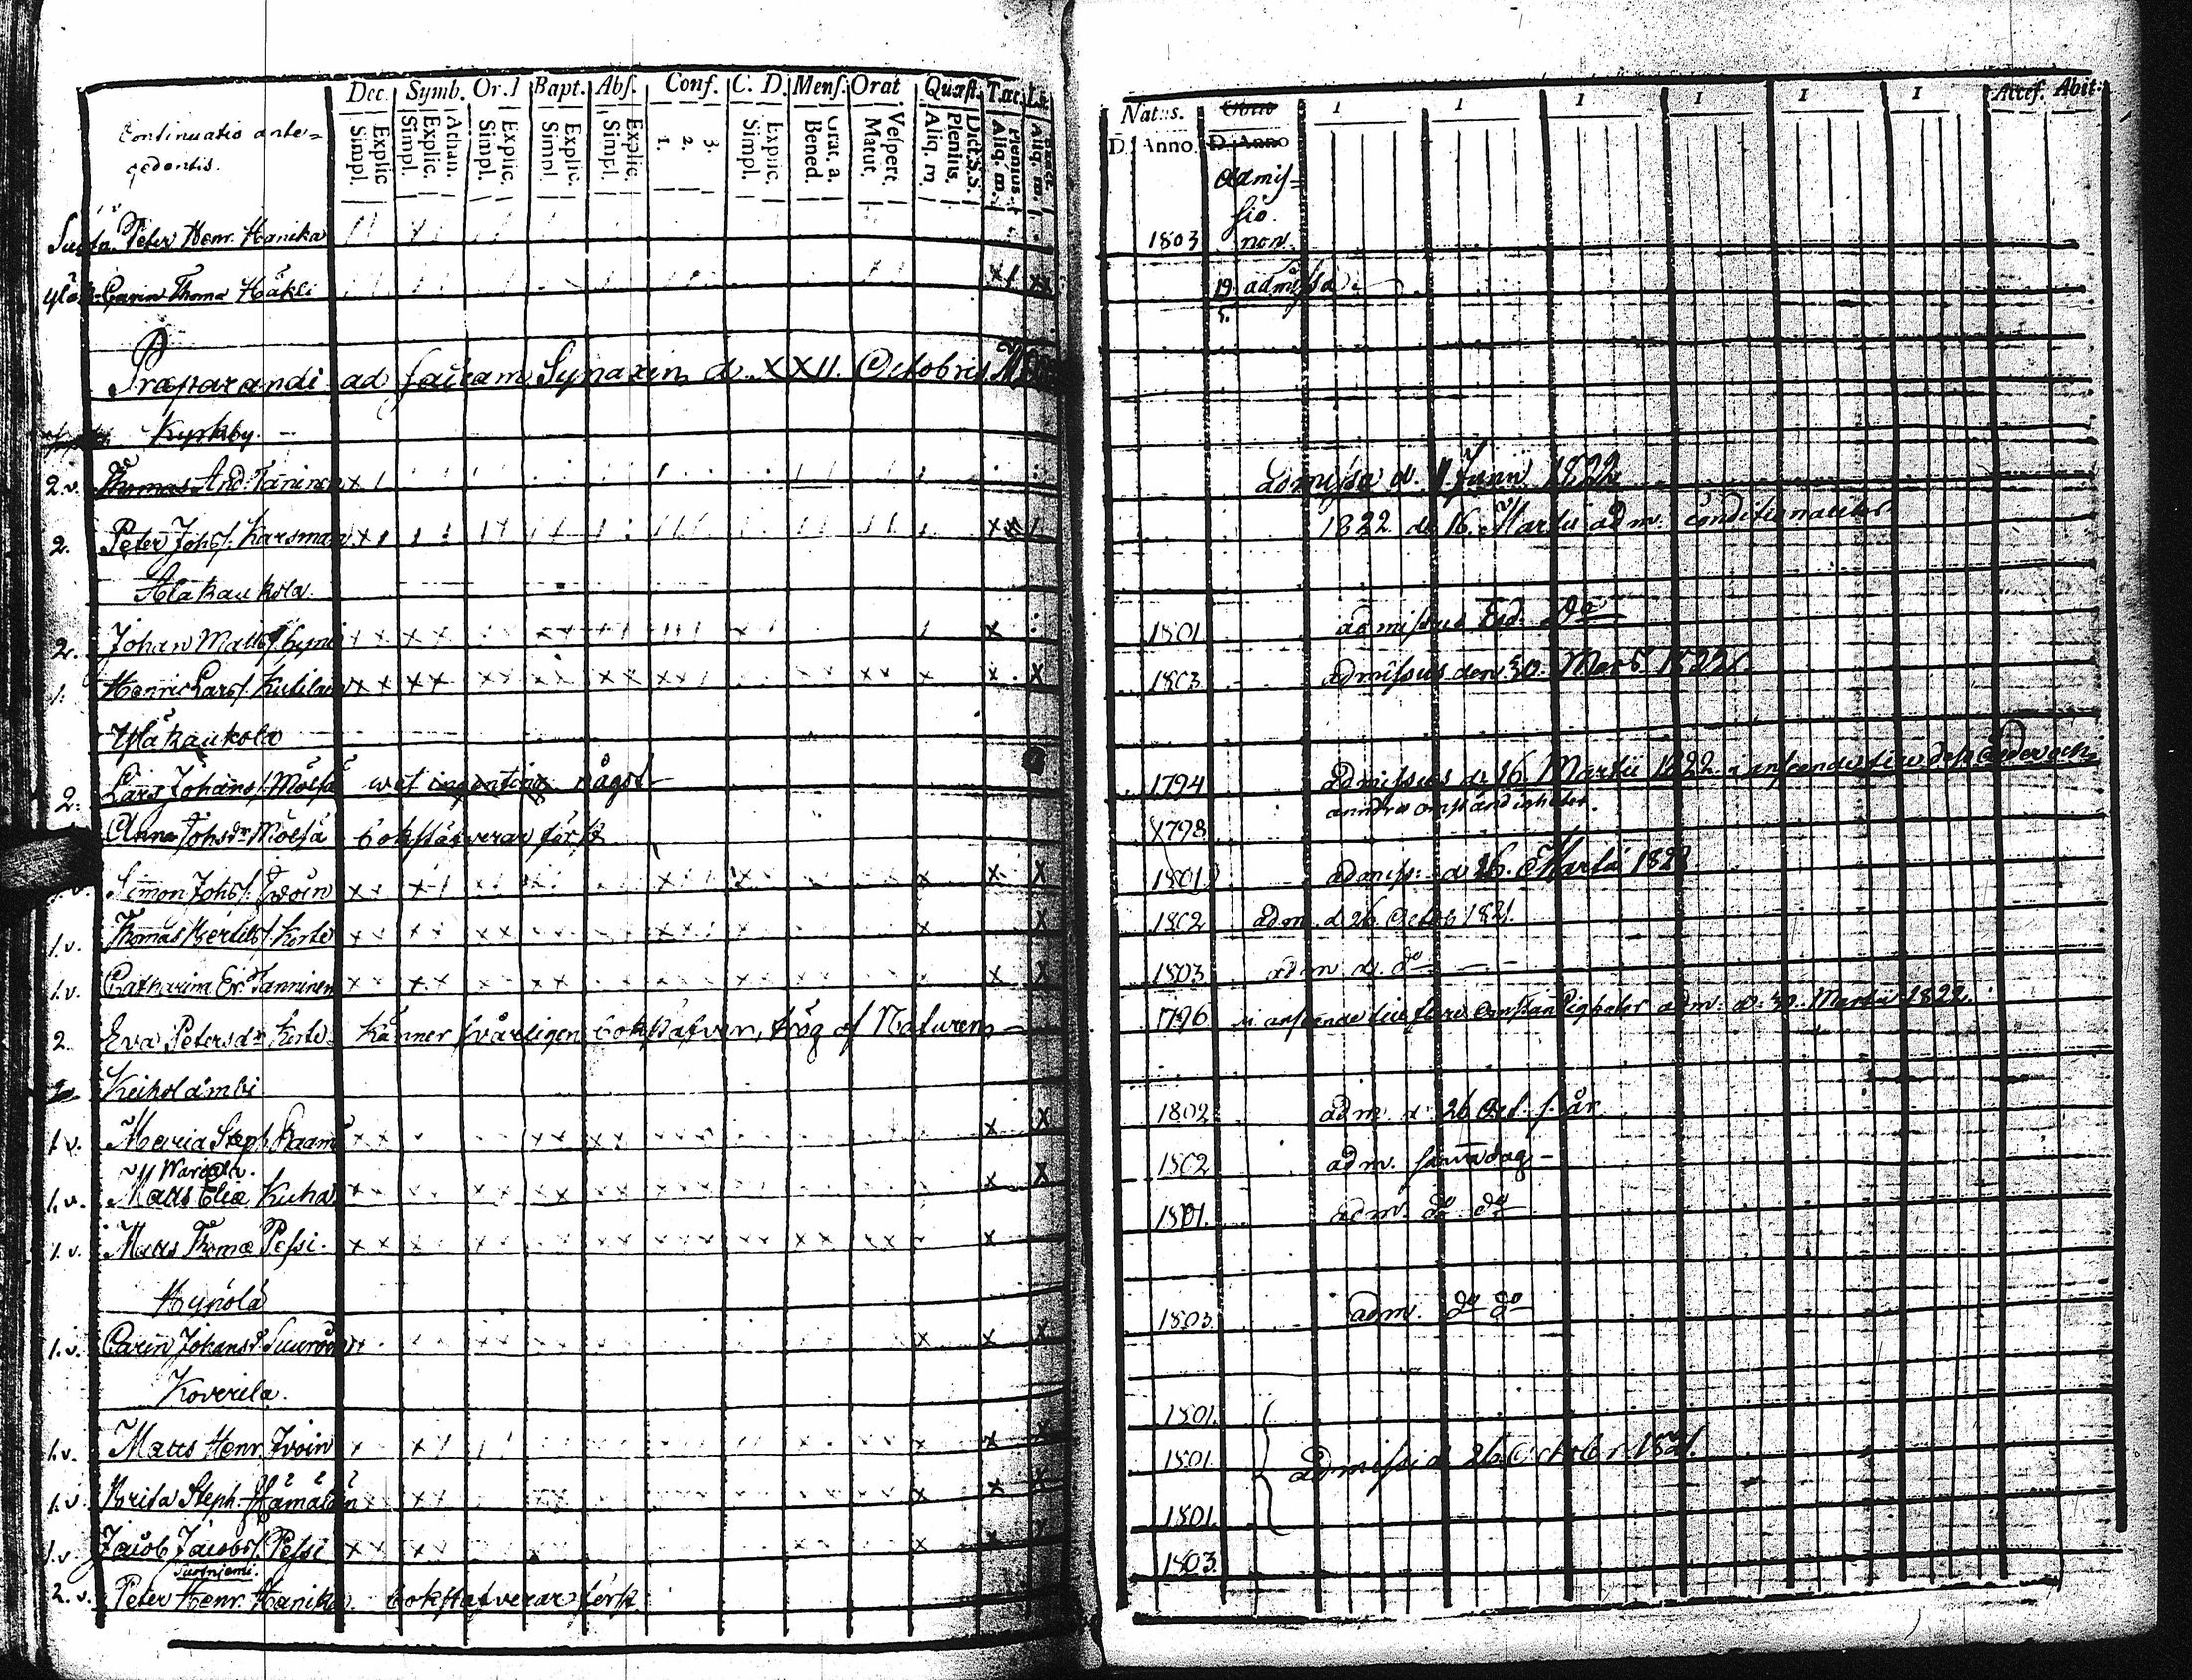 Dec. Symb. Or. 1 Bapt. Abs. Conf. C. D. Mens. Orat Quæst. Tac.
Continuatio antecedentis.
Simpl. Explic Simpl. Explic. Athan. Simpl. Explic. Simpl. Explic. Simpl. Explic. 1. 2. 3. Simpl. Explic. Bened. Grat. a. Matut. Vespert. Aliq. m. Plenius. Dict. S.S. Aliq. m. Plenius. Aliq. m.
Peter Henr. Hanika
Carin Thoma Häkli
Præparandi ad sacram Synaxin d. XXII. Octobris
Kyrkby.
2. v. Thomas And. Taninen
2. Peter Johs. Karsman
Alakaukola.
2. Johan Matts
1. Henric Lars.
Yläkaukola
2. Lars Johans. Mölsä wet ingenting något
Anna Johsdr Mölsä bokstafverar först
Simon Johs. Ivoin
1. v. Thomas Bertils. Korte
1. v. Catharina Er. Tanninen
2. Eva Petersdr Korte känner svårligen bokstafven, trög af Naturen
Keiholambi
1 v. Maria Steph. Kaama
1. v. Matts Eliæ Kuha
1. v. Matts Thomæ Pessi.
Hypölä
1. v. Carin Johansd.
Koverila.
1. v. Matts Henr. Ivoin
1. v. Brita Steph. Hämäläin
1. v. Jacob Jacobs. Pessi
2. v. Peter Henr. Hanika bokstafverar först.
Natus. Obiit 1 1 1 1 1 1 Acces. Abit.
D. Anno. D. Anno
Admissio
1803 non.
19. admissa
Admissa d. 1 Junii 1822
1822 d. 16 Martii adm. conditionaliter
1801 admissus Eod. Do
1803 admissus den 30. Mars 1822
1794 admissus d. 16. Martii 1822 i anseende til dess ålder och
andra omständigheter.
1798
1801 admiss. d. 16. Martii 1822
1802 adm. d. 26. Octob 1821.
1803 adm. d. do
1796 i anseende til flere omständigheter adm. d. 30. Martii 1822.
1802 adm. d. 26 Oct. s. år
1802 adm. samma dag
1801. adm. do do
1803 adm. do do
1801.
1801. admissi d. 26. October 1821.
1801.
1803.